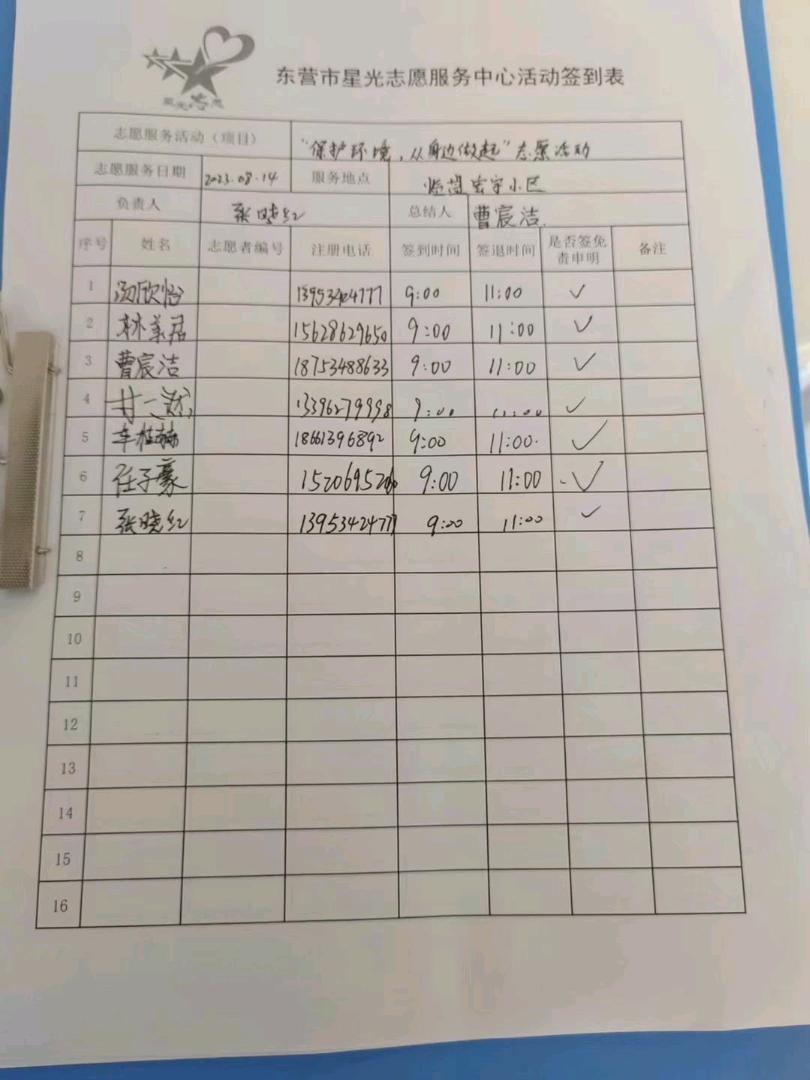 星光志愿
东营市星光志愿服务中心活动签到表
志愿服务活动（项目） “保护环境，从身边做起”志愿活动
志愿服务日期 2023.08.14 服务地点 宏宇小区
负责人 张晓红 总结人 曹宸洁
序号 姓名 志愿者编号 注册电话 签到时间 签退时间 是否签免责申明 备注
1 汤欣怡 13953404777 9:00 11:00 ✓
2 林美君 15628629650 9:00 11:00 ✓
3 曹宸洁 18753488633 9:00 11:00 ✓
4 甘一 13396279998 9:00 11:00 ✓
5 车桂楠 18661396892 9:00 11:00. ✓
6 任子豪 9:00 11:00 ✓
7 张晓红 13953424777 9:00 11:00 ✓
8
9
10
11
12
13
14
15
16